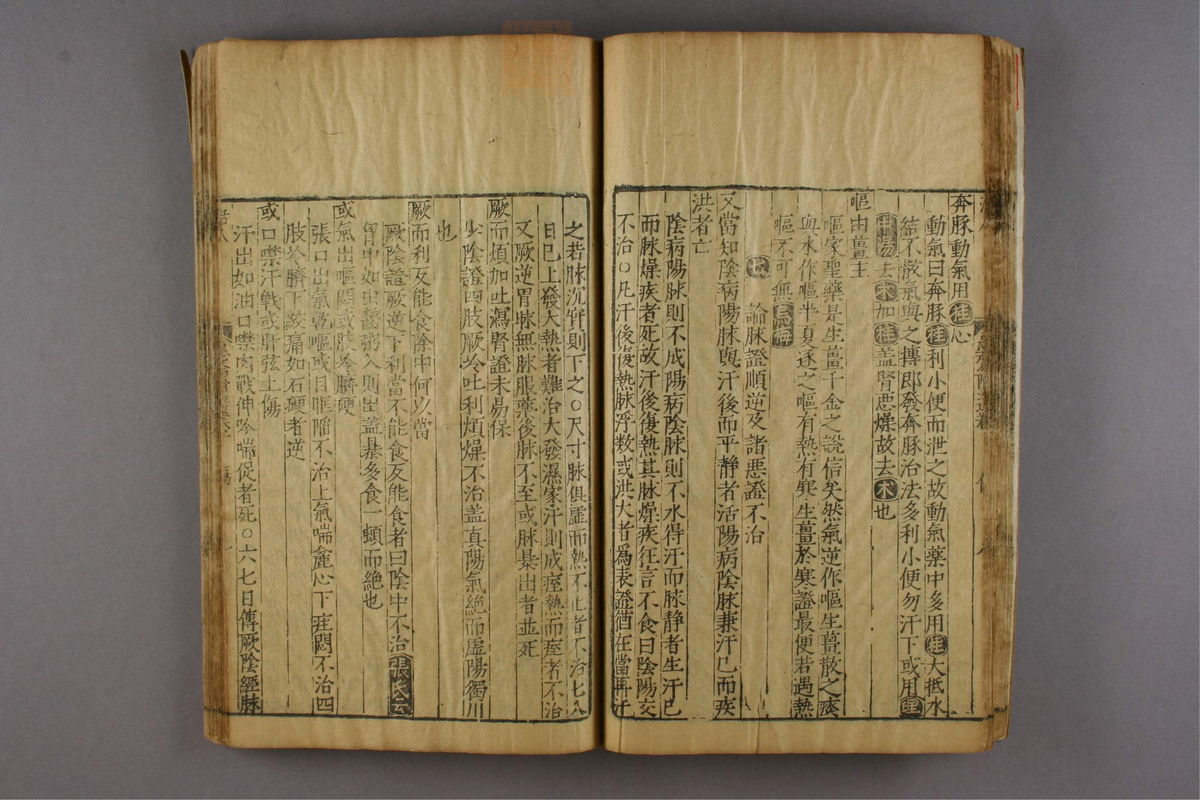 奔豚動氣用桂心
動氣曰奔豚桂利小便而泄之故動氣藥中多用桂大抵水
結不散氣與之搏即發奔豚治法多利小便勿汗下或用理
中湯去朮加桂蓋腎惡燥故去朮也
嘔由薑主
嘔家聖藥是生薑千金之說信矣然氣逆作嘔生薑散之痰
與水作嘔半夏逐之嘔有熱有寒生薑於寒證最便若遇熱
嘔不可無烏梅
七 論脉證順逆及諸惡證不治
又當知陰病陽脉與汗後而平静者活陽病陰脉兼汗已而疾
洪者亡
陰病陽脉則不成陽病陰脉則不水得汗而脉静者生汗已
而脉燥疾者死故汗後復熱其脉燥疾狂言不食曰陰陽交
不治○凡汗後復熱脉浮数或洪大者爲表證猶在當再汗
之若脉沉實則下之○尺寸脉俱虚而熱不止者不治七八
日已上發大熱者難治大發濕家汗則成痓熱而痓者不治
又厥逆胃 無脉服藥後脉不至或脉暴出者並死
厥而煩加吐瀉腎證未易保
少陰證四肢厥冷吐利煩燥不治蓋真陽氣絶而虚陽獨
也
厥而利反能食除中何以當
厥陰證厥逆下利當不能食反能食者曰陰中不治張氏云
胃中如 粥入則出蓋暴多食一頓而絶也
或氣出嘔悶或肢冷臍硬
張口出氣乾嘔或目眶陷不治上氣喘麄心下 悶不治四
肢冷臍下絞痛如石硬者逆
或口噤汗戰或肝弦土傷
汗出如油口噤肉戰呻吟喘促者死○六七日傳厥陰經脉